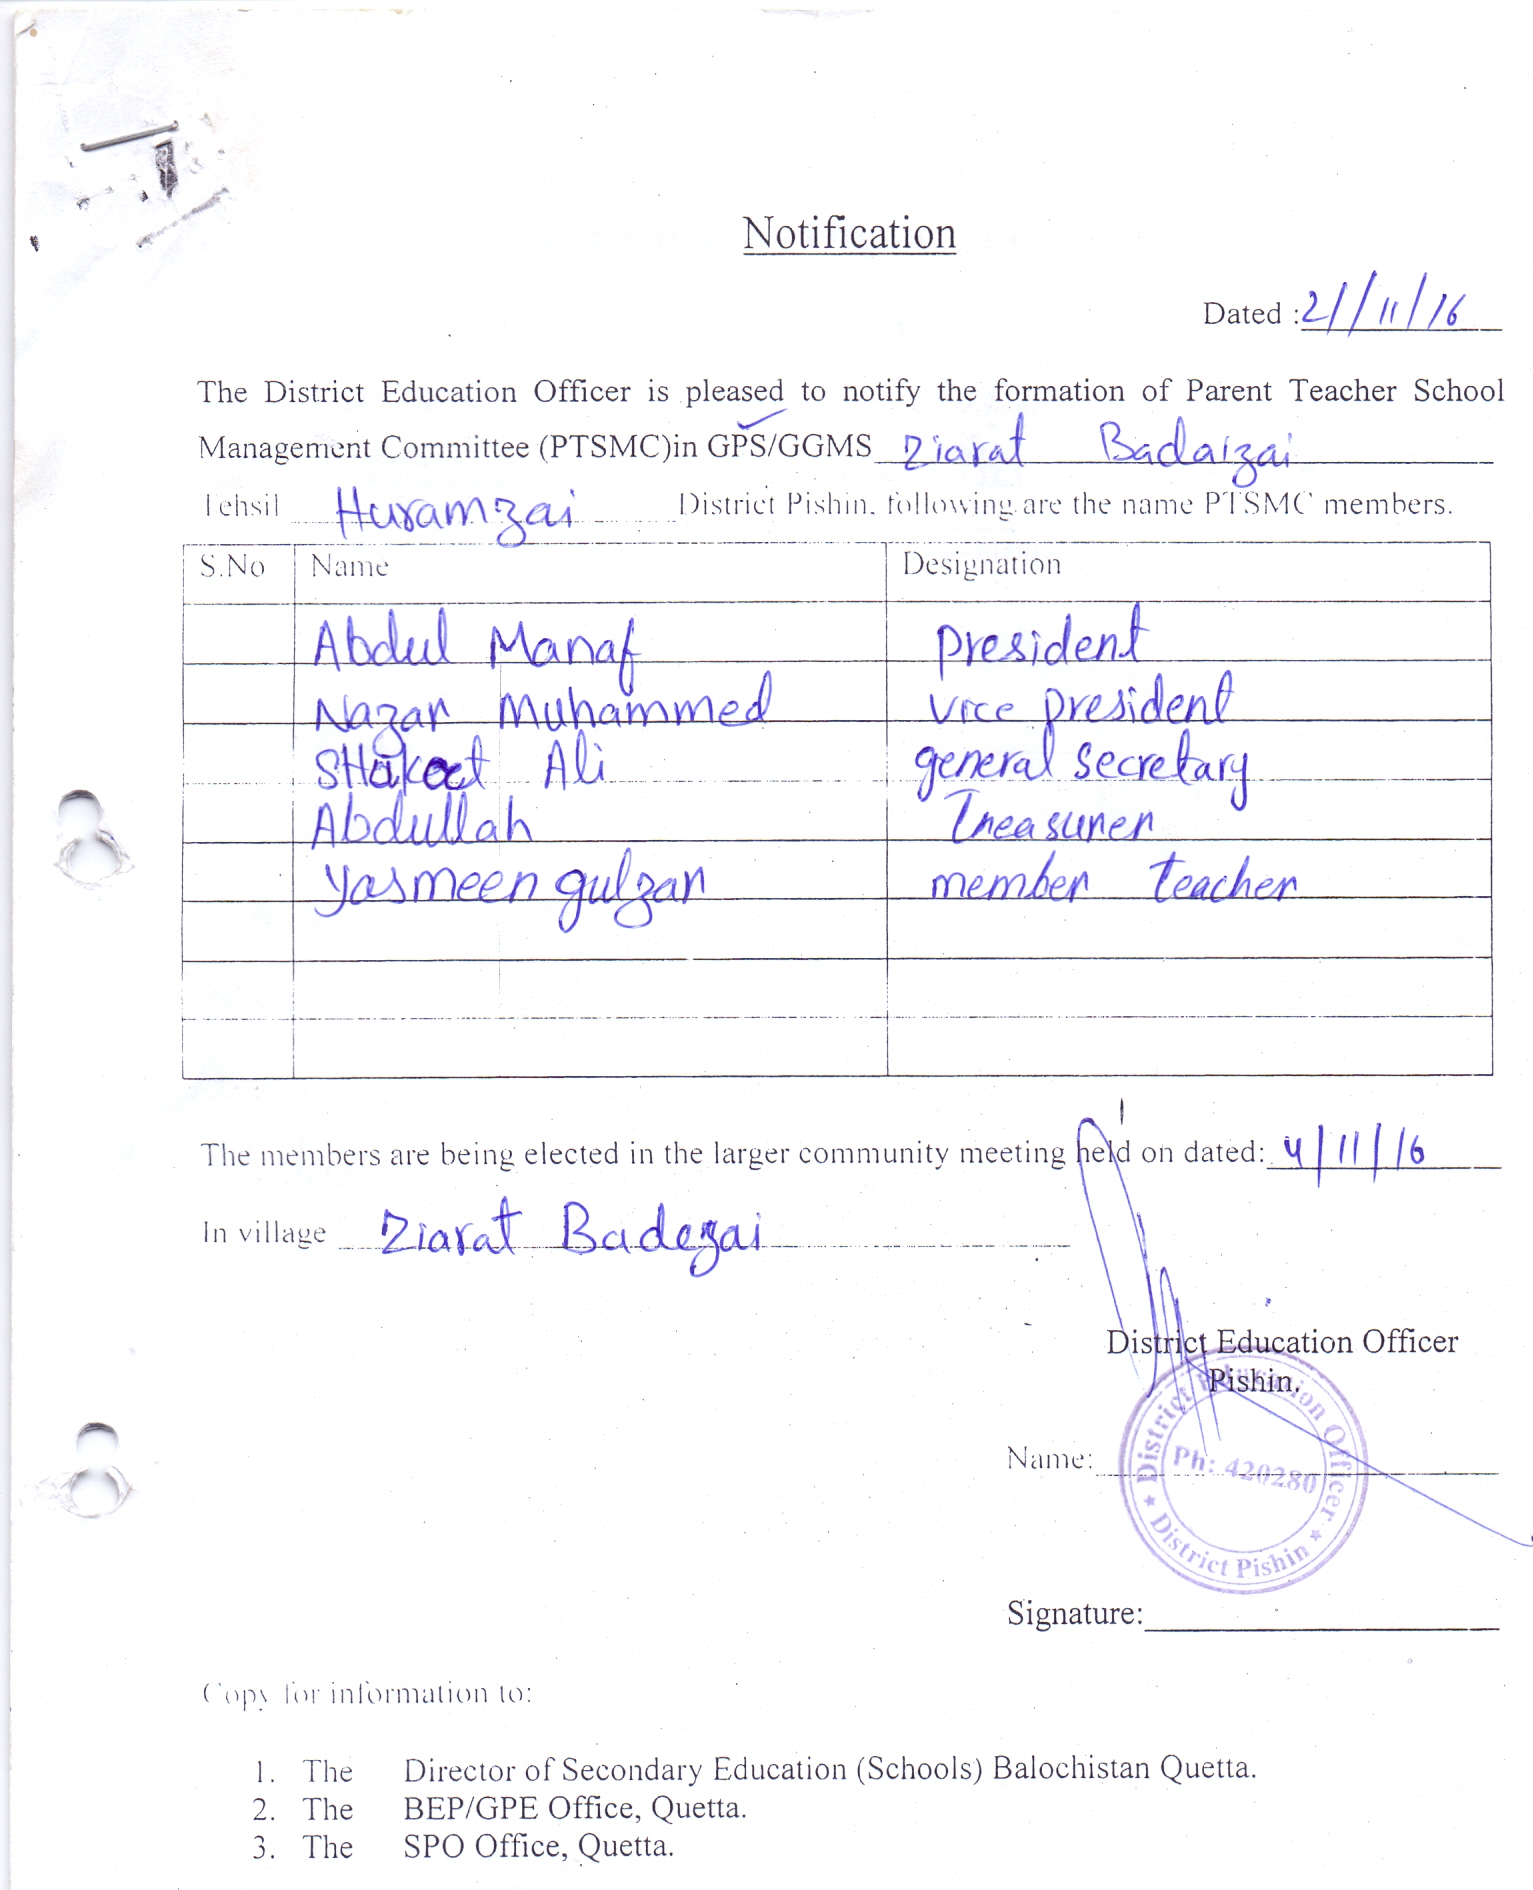 Notification
Dated : 21/11/16
The District Education Officer is pleased to notify the formation of Parent Teacher School
Management Committee (PTSMC)in GPS/GGMS Ziarat Badaizai
Tehsil Huramzai District Pishin, following are the name PTSMC members.
S.No Name Designation
Abdul Manaf president
Nazar Muhammed vice president
SHakeet Ali general secretary
Abdullah Treasurer
Yasmeen gulzar member teacher
The members are being elected in the larger community meeting held on dated: 4/11/16
In village Ziarat Badezai
District Education Officer
Pishin.
Name:
District Education Officer
Ph: 420280
District Pishin
Signature:
Copy for information to:
1. The Director of Secondary Education (Schools) Balochistan Quetta.
2. The BEP/GPE Office, Quetta.
3. The SPO Office, Quetta.